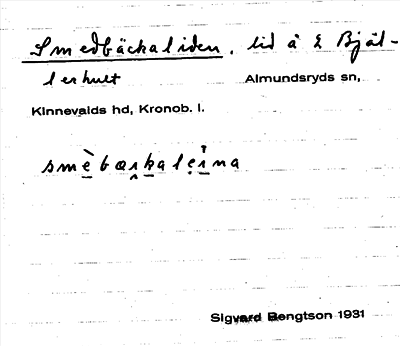 Smedbäckaliden, lid å L Bjäl-
lerhult Almundsryds sn,
Kinnevalds hd, Kronob. l.
Sigvard Bengtson 1931